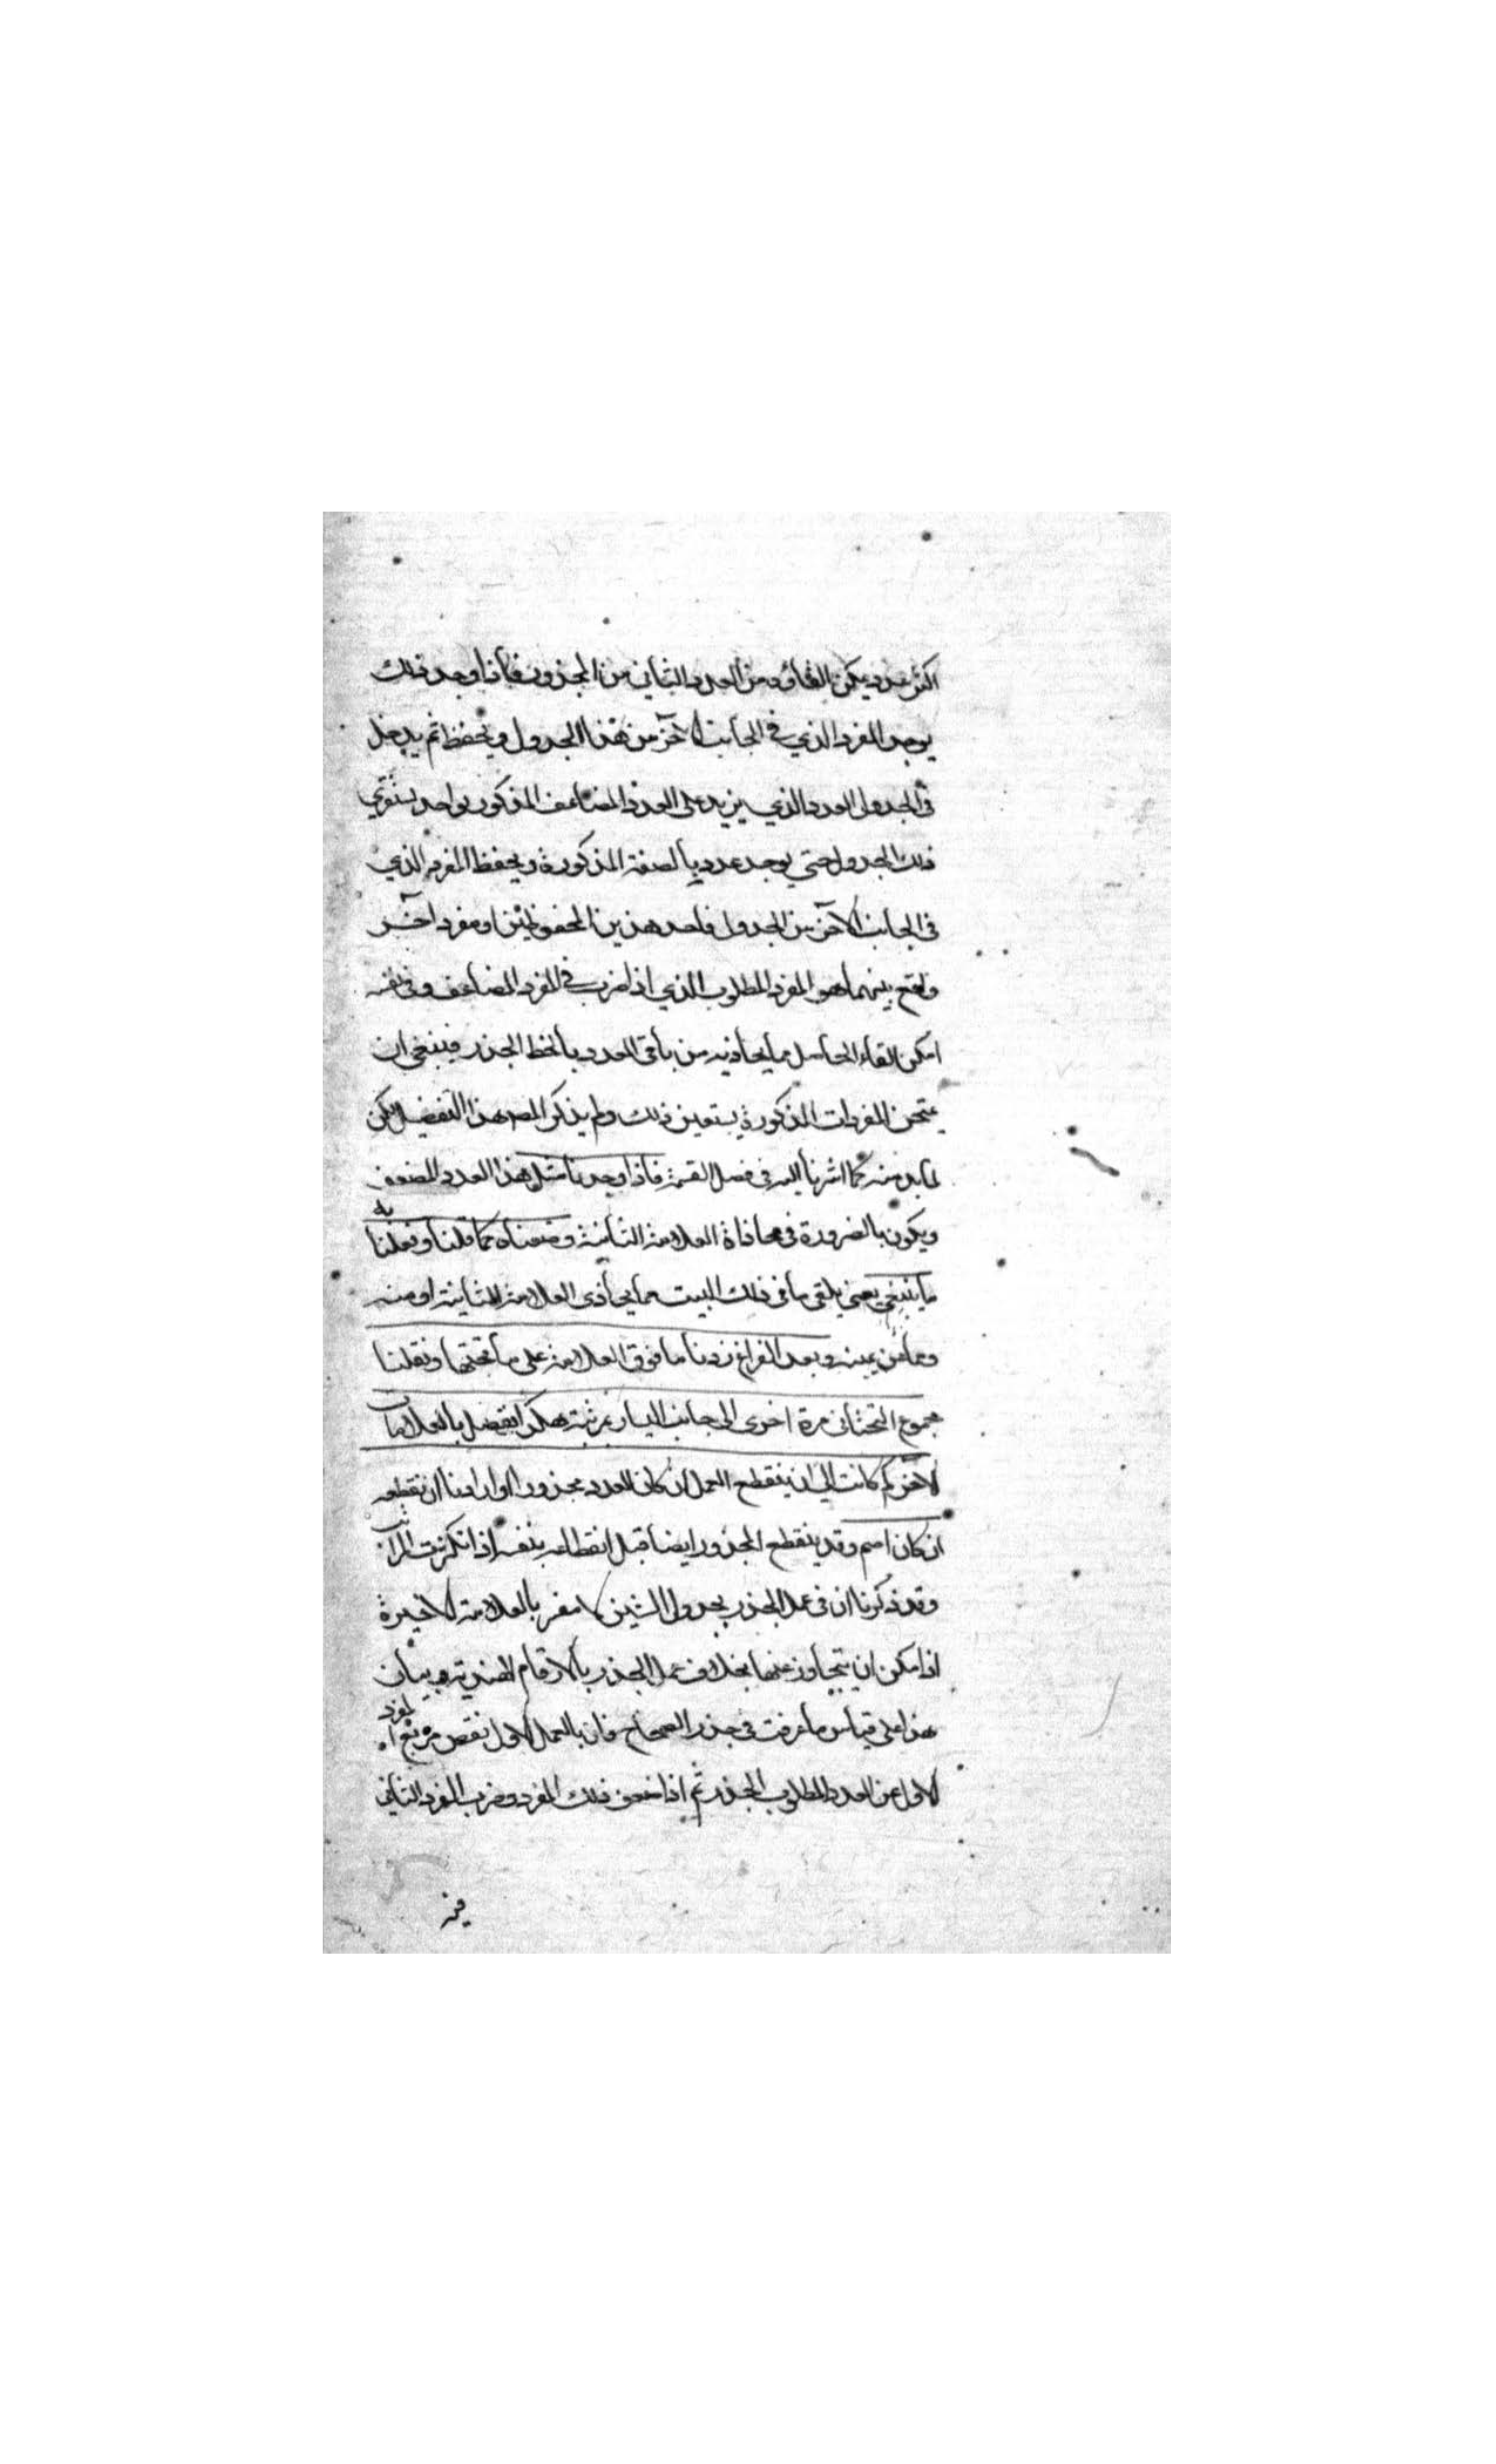 اكثر عدد يمكن القاؤه من العدد الثاني من المجذور فاذا وجد ذلك
يوجد المفرد الذي في الجانب الآخر من هذا الجدول ويحفظ ثم يدخل
في الجدول العدد الذي يزيد على العدد المضاعف المذكور بواحد يستقري
ذلك الجدول حتي يوجد عدد بالصفة المذكورة ويحفظ المفرد الذي
في الجانب الآخر من الجدول فاحد هذين المحفوظين او مفرد آخر
واقع بينهما هو المفرد المطلوب الذي اذا ضرب في المفرد المضاعف وفي نفسه
امكن القاء الحاصل مما يحاذيه من باقي العدد بالخط الجذر فينبغي ان
يمتحن المفردات المذكورة يستعين ذلك ولم يذكر المص هذا التفصيل لكن
لا بد منه كما اشرنا اليه في فصل القسمة فاذا وجدنا مثل هذا العدد المضعف
ويكون بالضرورة في محاذاة العلامة الثانية وضعناه كما قلنا وفعلنا به
ما ينبغي يعني يلقى ما في ذلك البيت مما يحاذى العلامة الثانية او منه
وعما عن يمينه وبعد الفراغ زدنا ما فوق العلامة على ما تحتها ونقلنا
مجموع التحتاني مرة اخرى الى جانب اليسار بمرتبة هكذا يفصل بالعلامات
الآخر كم كانت الي ان ينقطع العمل ان كان العدد مجذورا او ارادنا ان نقطعه
ان كان اصم وقد ينقطع المجذور ايضا قبل انقطاعه بنفسه اذا تكررت المراتب
وقد ذكرنا ان في عمل الجذر بجدول الستين لا مفر بالعلامة الاخيرة
اذا مكن ان يتجاوز عنها بخلاف عمل الجذر بالارقام الهندية وبيان
هذا على قياس ما عرفت في جذر الصحاح فان بالعمل الاول نقص مربع المفرد
الاول عن العدد المطلوب الجذر ثم اذا ضعف ذلك المفرد وضرب المفرد الثاني
فيه